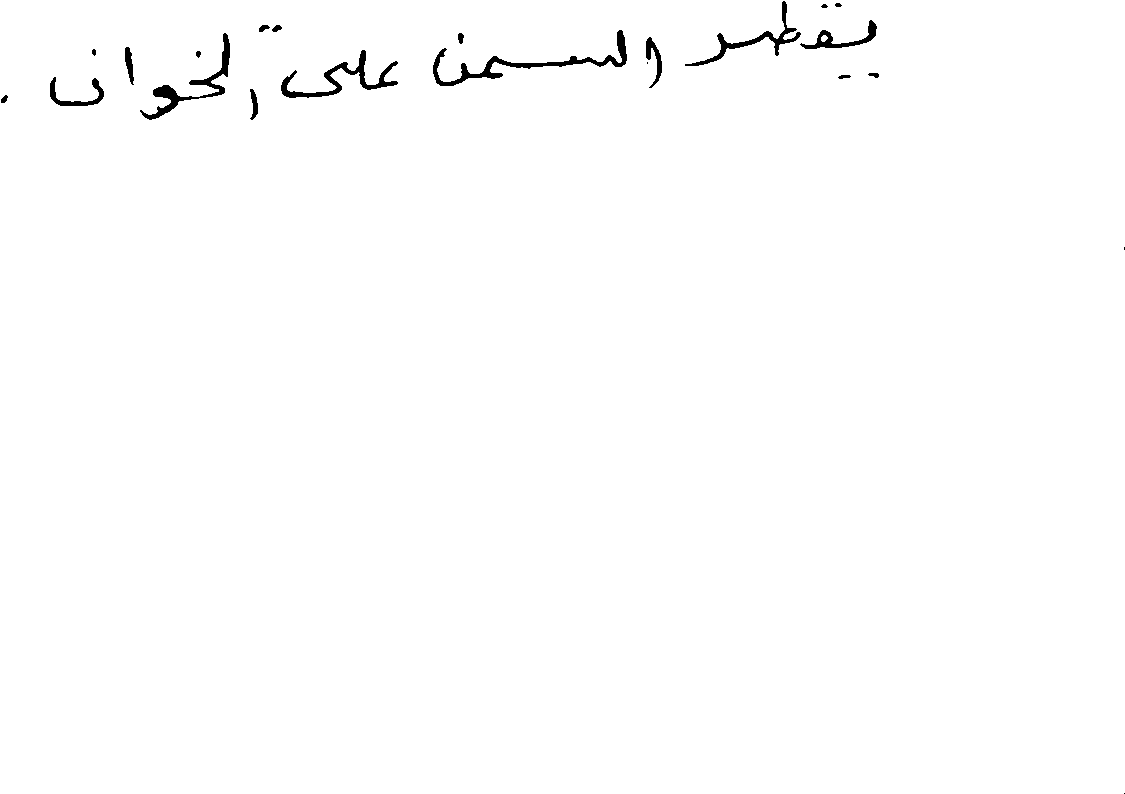 يقطر السمن على الخوان .